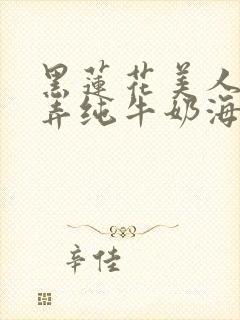 黑蓮花美人
弄纯牛奶海
辛佳